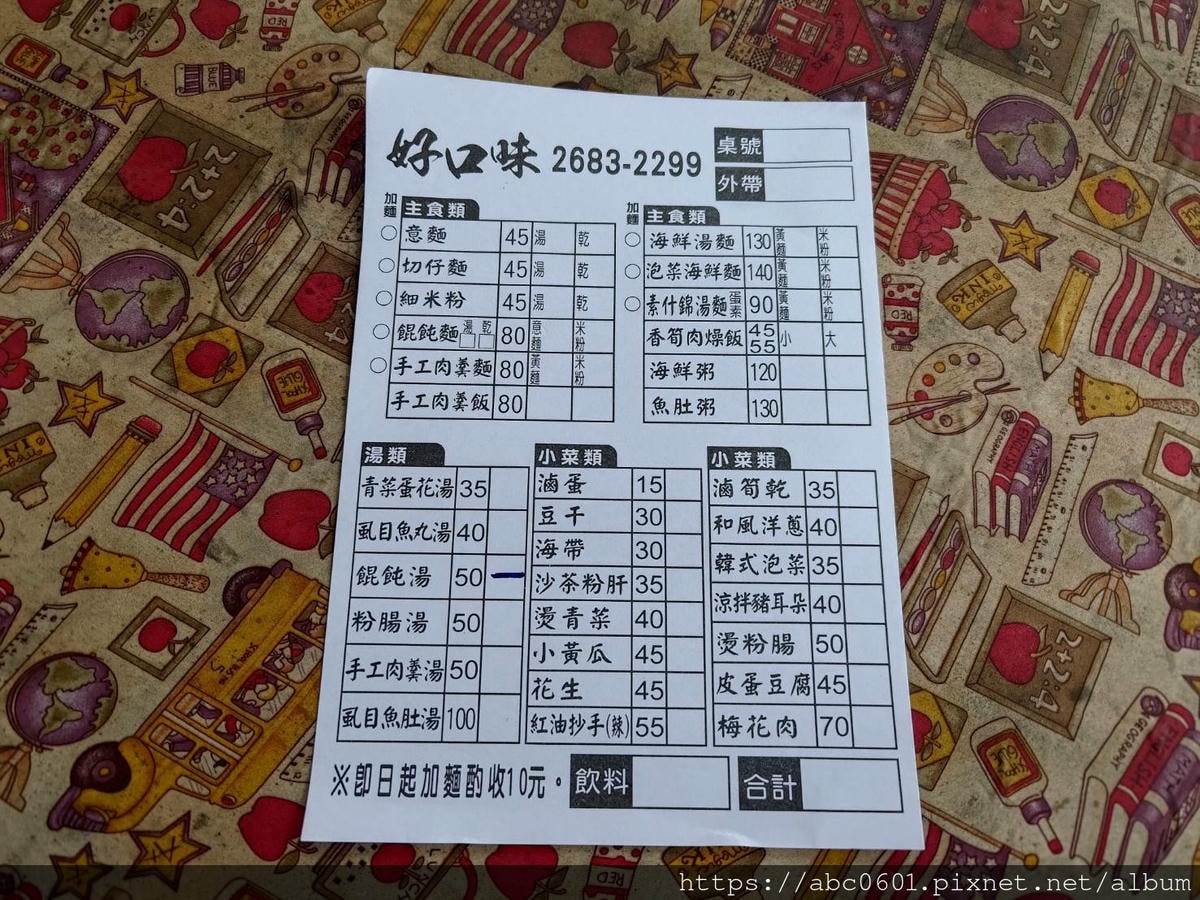 好口味 2683-2299
桌號
外帶
加麵 主食類
意麵 45 湯 乾
切仔麵 45 湯 乾
細米粉 45 湯 乾
餛飩麵 湯 乾 80 意麵 米粉
手工肉羹麵 80 黃麵 米粉
手工肉羹飯 80
加麵 主食類
海鮮湯麵 130 黃麵 米粉
泡菜海鮮麵 140 黃麵 米粉
素什錦湯麵 蛋素 90 黃麵 米粉
香筍肉燥飯 45 55 小 大
海鮮粥 120
魚肚粥 130
湯類
青菜蛋花湯 35
虱目魚丸湯 40
餛飩湯 50
粉腸湯 50
手工肉羹湯 50
虱目魚肚湯 100
小菜類
滷蛋 15
豆干 30
海帶 30
沙茶粉肝 35
燙青菜 40
小黃瓜 45
花生 45
紅油抄手(辣) 55
小菜類
滷筍乾 35
和風洋蔥 40
韓式泡菜 35
涼拌豬耳朵 40
燙粉腸 50
皮蛋豆腐 45
梅花肉 70
※即日起加麵酌收10元。
飲料
合計
https://abc0601.pixnet.net/album